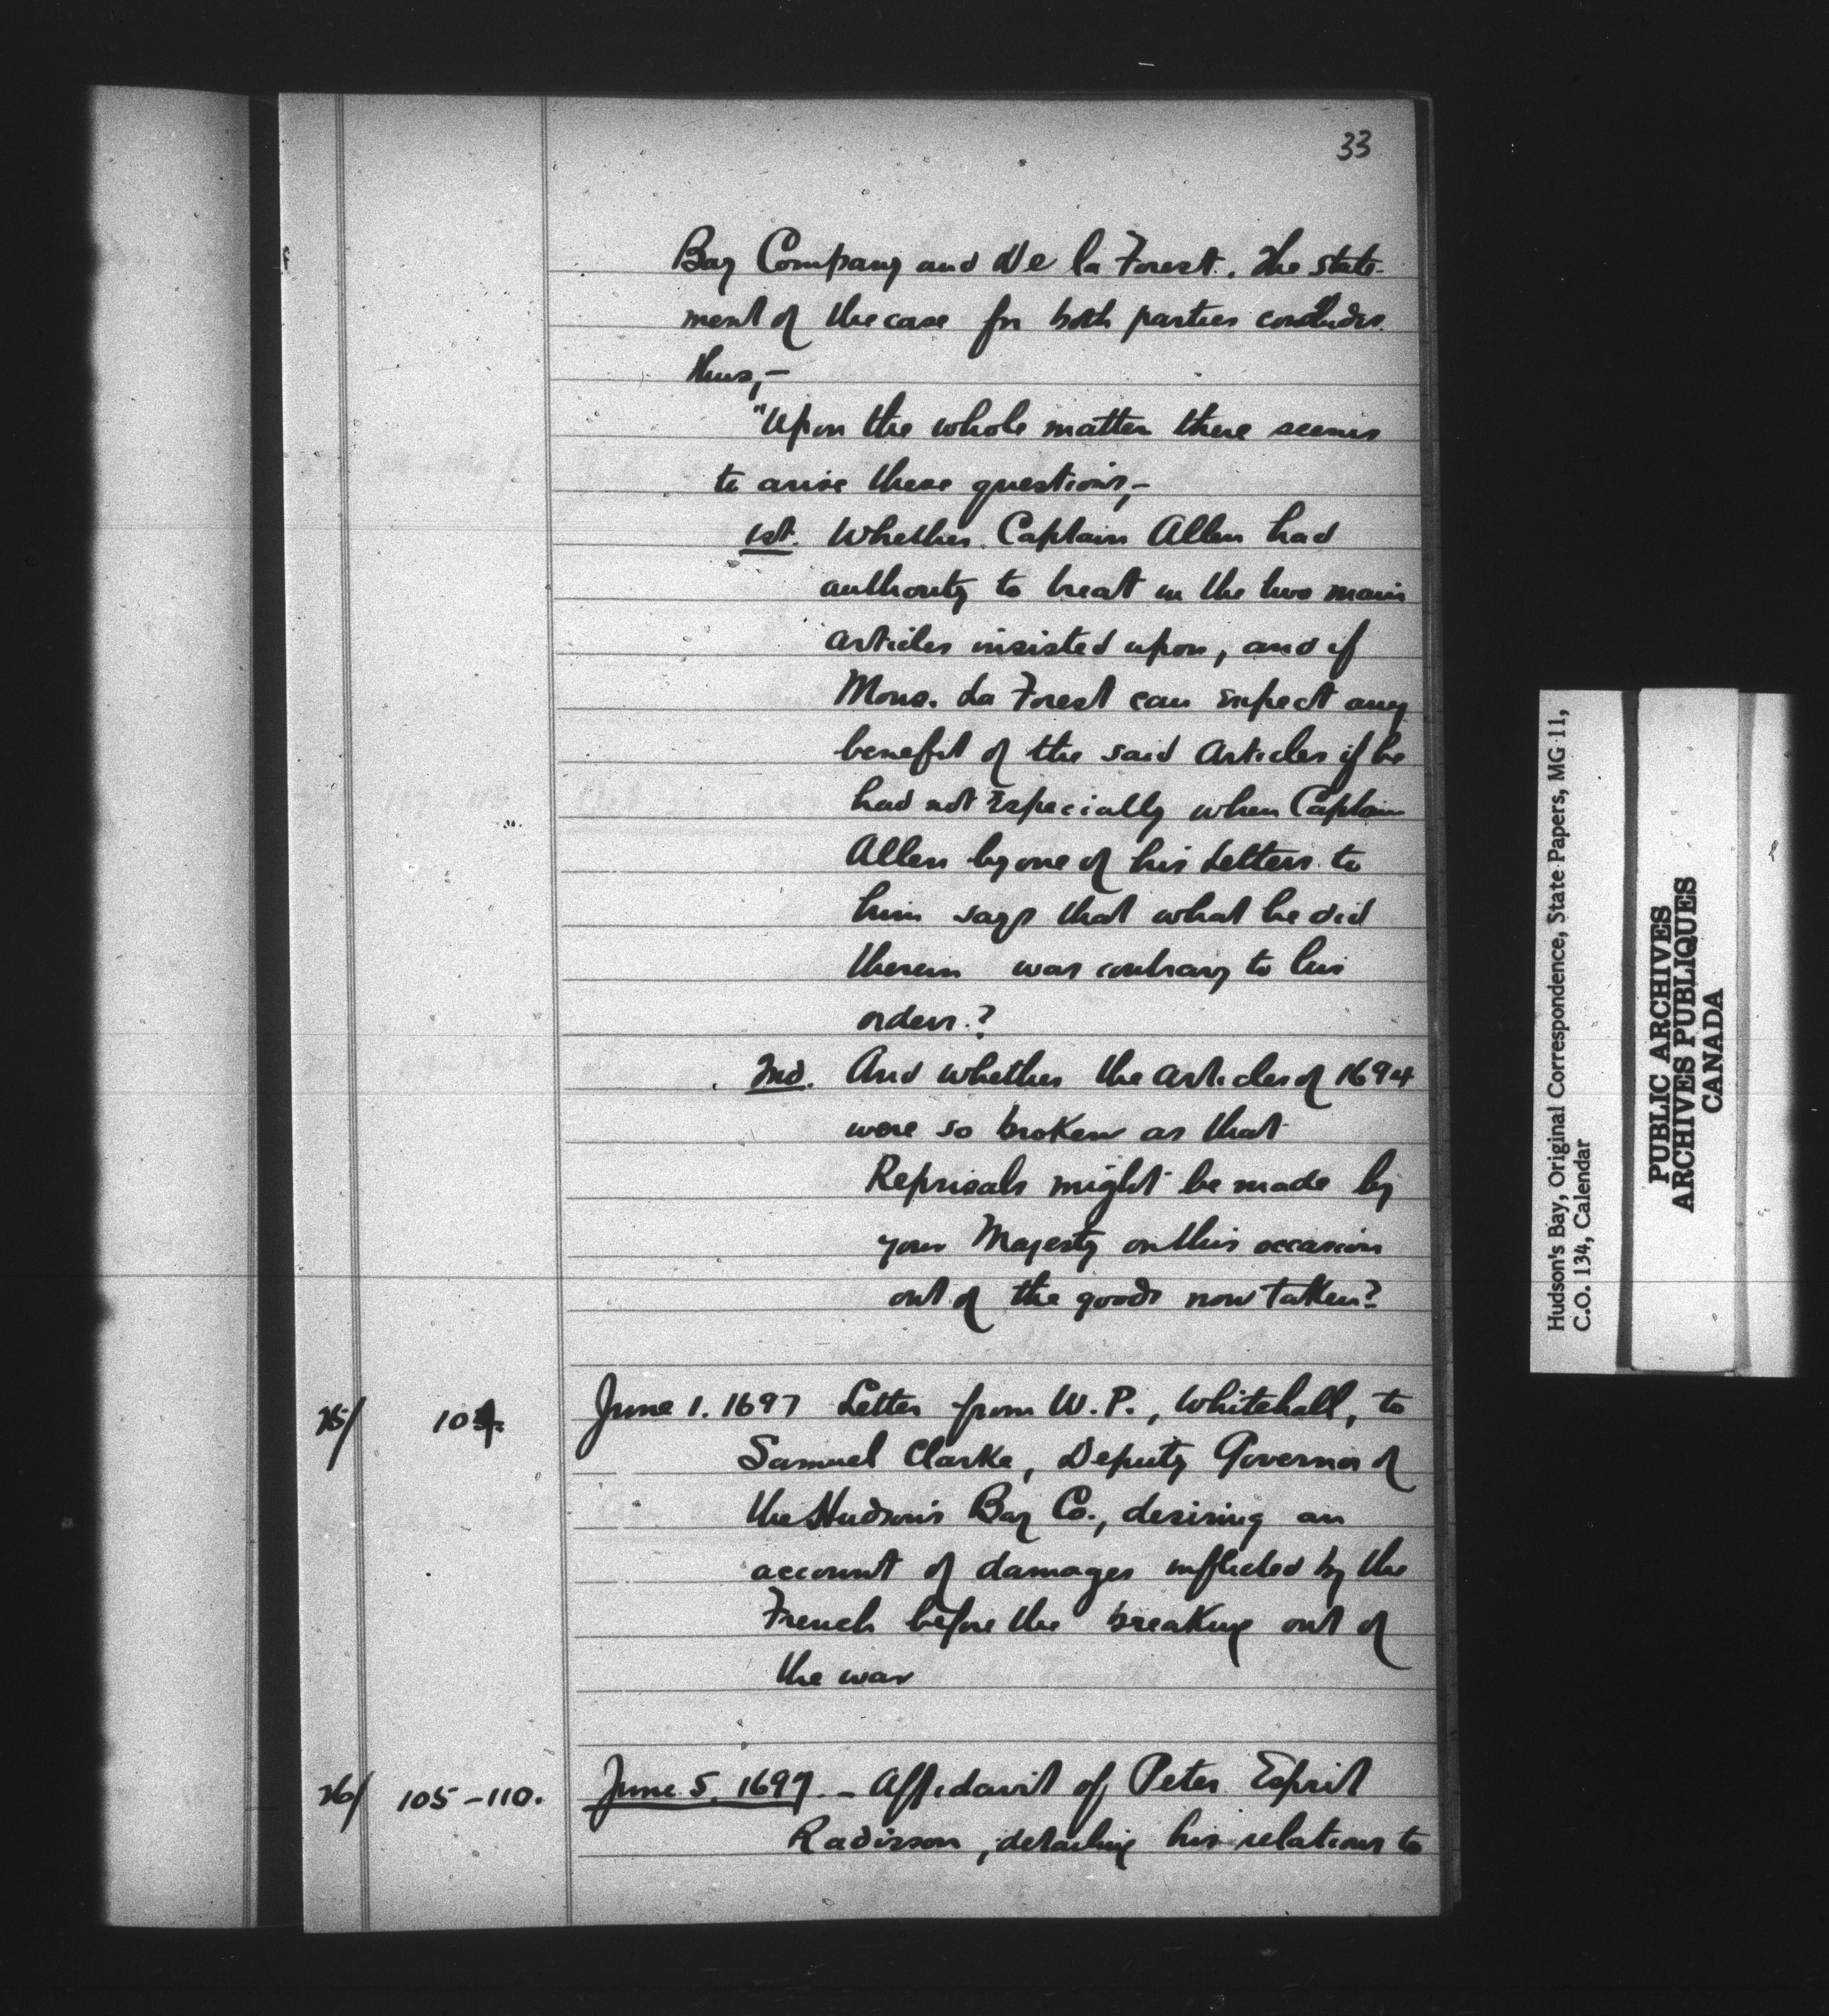 33
Bay Company and De la Forest. The state-
ment of the case for both parties concludes
thus,-
"Upon the whole matter there seems
to arise these questions,-
1st. Whether Captain Allen had
authority to treat in the two main
articles insisted upon, and if
Mons. La Forest can expect any
benefit of the said Articles if he
had not Especially when Captain
Allen by one of his Letters to
him says that what he did
therein was contrary to his
orders.?
2nd. And whether the articles of 1694
were so broken as that
Reprisals might be made by
your Majesty on this occasion
out of the goods now taken?
25/ 104. June 1. 1697 Letter from W.P., Whitehall, to
Samuel Clarke, Deputy Governor of
the Hudson's Bay Co., desiring an
account of damages inflicted by the
French before the breaking out of
the war
26/ 105-110. June 5. 1697. - Affidavit of Peter Esprit
Radisson, detailing his relations to
Hudson's Bay, Original Correspondence, State Papers, MG 11,
C.O. 134, Calendar
PUBLIC ARCHIVES
ARCHIVES PUBLIQUES
CANADA